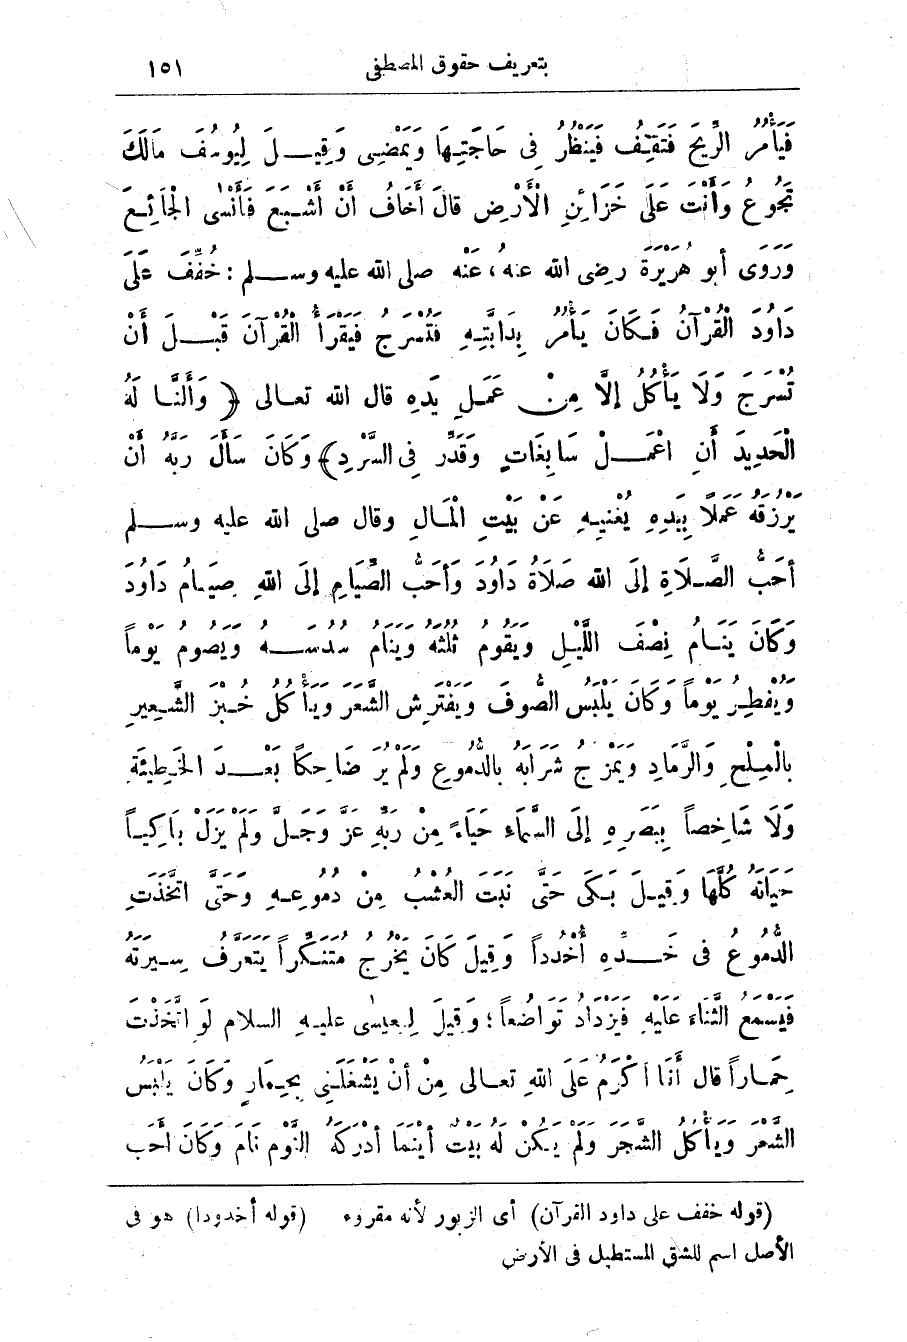 بتعريف حقوق المصطفى ١٥١
فَيَأْمُرُ الرِّيحَ فَتَقِفُ فَيَنْظُرُ فِى حَاجَتِهَا وَيَمْضِى وَقِيلَ لِيُوسُفَ مَالَكَ
تَجُوعُ وَأَنْتَ عَلَى خَزَائِنِ الْأَرْضِ قالَ أَخَافُ أَنْ أَشْبَعَ فَأَنْسَى الْجَائِعَ
وَرَوَى أبو هُرَيْرَةَ رضى الله عنهُ، عَنْه صلى الله عليه وسلم : خُفِّفَ عَلَى
دَاوُدَ الْقُرْآنُ فَكَانَ يَأْمُرُ بِدَابَّتِهِ فَتُسْرَجُ فَيَقْرَأُ الْقُرْآنَ قَبْلَ أَنْ
تُسْرَجَ وَلَا يَأْكُلُ إِلَّا مِنْ عَمَلِ يَدِهِ قال الله تعالى ﴿ وَأَلَنَّا لَهُ
الْحَدِيدَ أَنِ اعْمَلْ سَابِغَاتٍ وَقَدِّر فِى السَّرْدِ﴾ وَكَانَ سَأَلَ رَبَّهُ أَنْ
يَرْزُقَهُ عَمَلًا بِيَدِهِ يُغْنِيهِ عَنْ بَيْتِ الْمَالِ وقال صلى الله عليه وسلم
أَحَبُّ الصَّلَاةِ إِلَى الله صَلَاةُ دَاوُدَ وَأَحَبُّ الصِّيَامِ إِلَى اللهِ صِيَامُ دَاوُدَ
وَكَانَ يَنَامُ نِصْفَ اللَّيْلِ وَيَقُومُ ثُلُثَهُ وَيَنَامُ سُدُسَهُ وَيَصُومُ يَوْماً
وَيُفْطِرُ يَوْماً وَكَانَ يَلْبَسُ الصُّوفَ وَيَفْتَرِشُ الشَّعَرَ وَيَأْكُلُ خُبْزَ الشَّعِيرِ
بِالْمِلْحِ وَالرَّمَادِ وَيَمْزُجُ شَرَابَهُ بالدُّمُوعِ وَلَمْ يُرَ ضَاحِكًا بَعْدَ الْخَطِيئَةِ
وَلَا شَاخِصاً بِبَصَرِهِ إِلَى السَّمَاءِ حَيَاءً مِنْ رَبِّهِ عَزَّ وَجَلَّ وَلَمْ يَزَلْ بَاكِياً
حَيَاتَهُ كُلَّهَا وَقِيلَ بَكَى حَتَّى نَبَتَ الْعُشْبُ مِنْ دُمُوعِهِ وَحَتَّى اتَّخَذَتِ
الدُّمُوعُ فى خَدِّهِ أُخْدُداً وَقِيلَ كَانَ يَخْرُجُ مُتَنَكِّراً يَتَعَرَّفُ سِيرَتَهُ
فَيَسْمَعُ الثَّنَاءَ عَلَيْهِ فَيَزْدَادُ تَوَاضُعاً؛ وَقِيلَ لِعِيسَى عليهِ السلام لَوِ اتَّخَذْتَ
حِمَاراً قال أَنَا أَكْرَمُ عَلَى اللهِ تعالى مِنْ أنْ يَشْغَلَنِى بِحِمَارٍ وَكَانَ يَلْبَسُ
الشَّعْرَ وَيَأْكُلُ الشَّجَرَ وَلَمْ يَكُنْ لَهُ بَيْتٌ أَيْنَمَا أَدْرَكَهُ النَّوْمُ نَامَ وَكَانَ أَحَبَّ
(قوله خفف على داود القرآن) أى الزبور لأنه مقروء (قوله أخدودا) هو فى
الأصل اسم للشق المستطيل فى الأرض